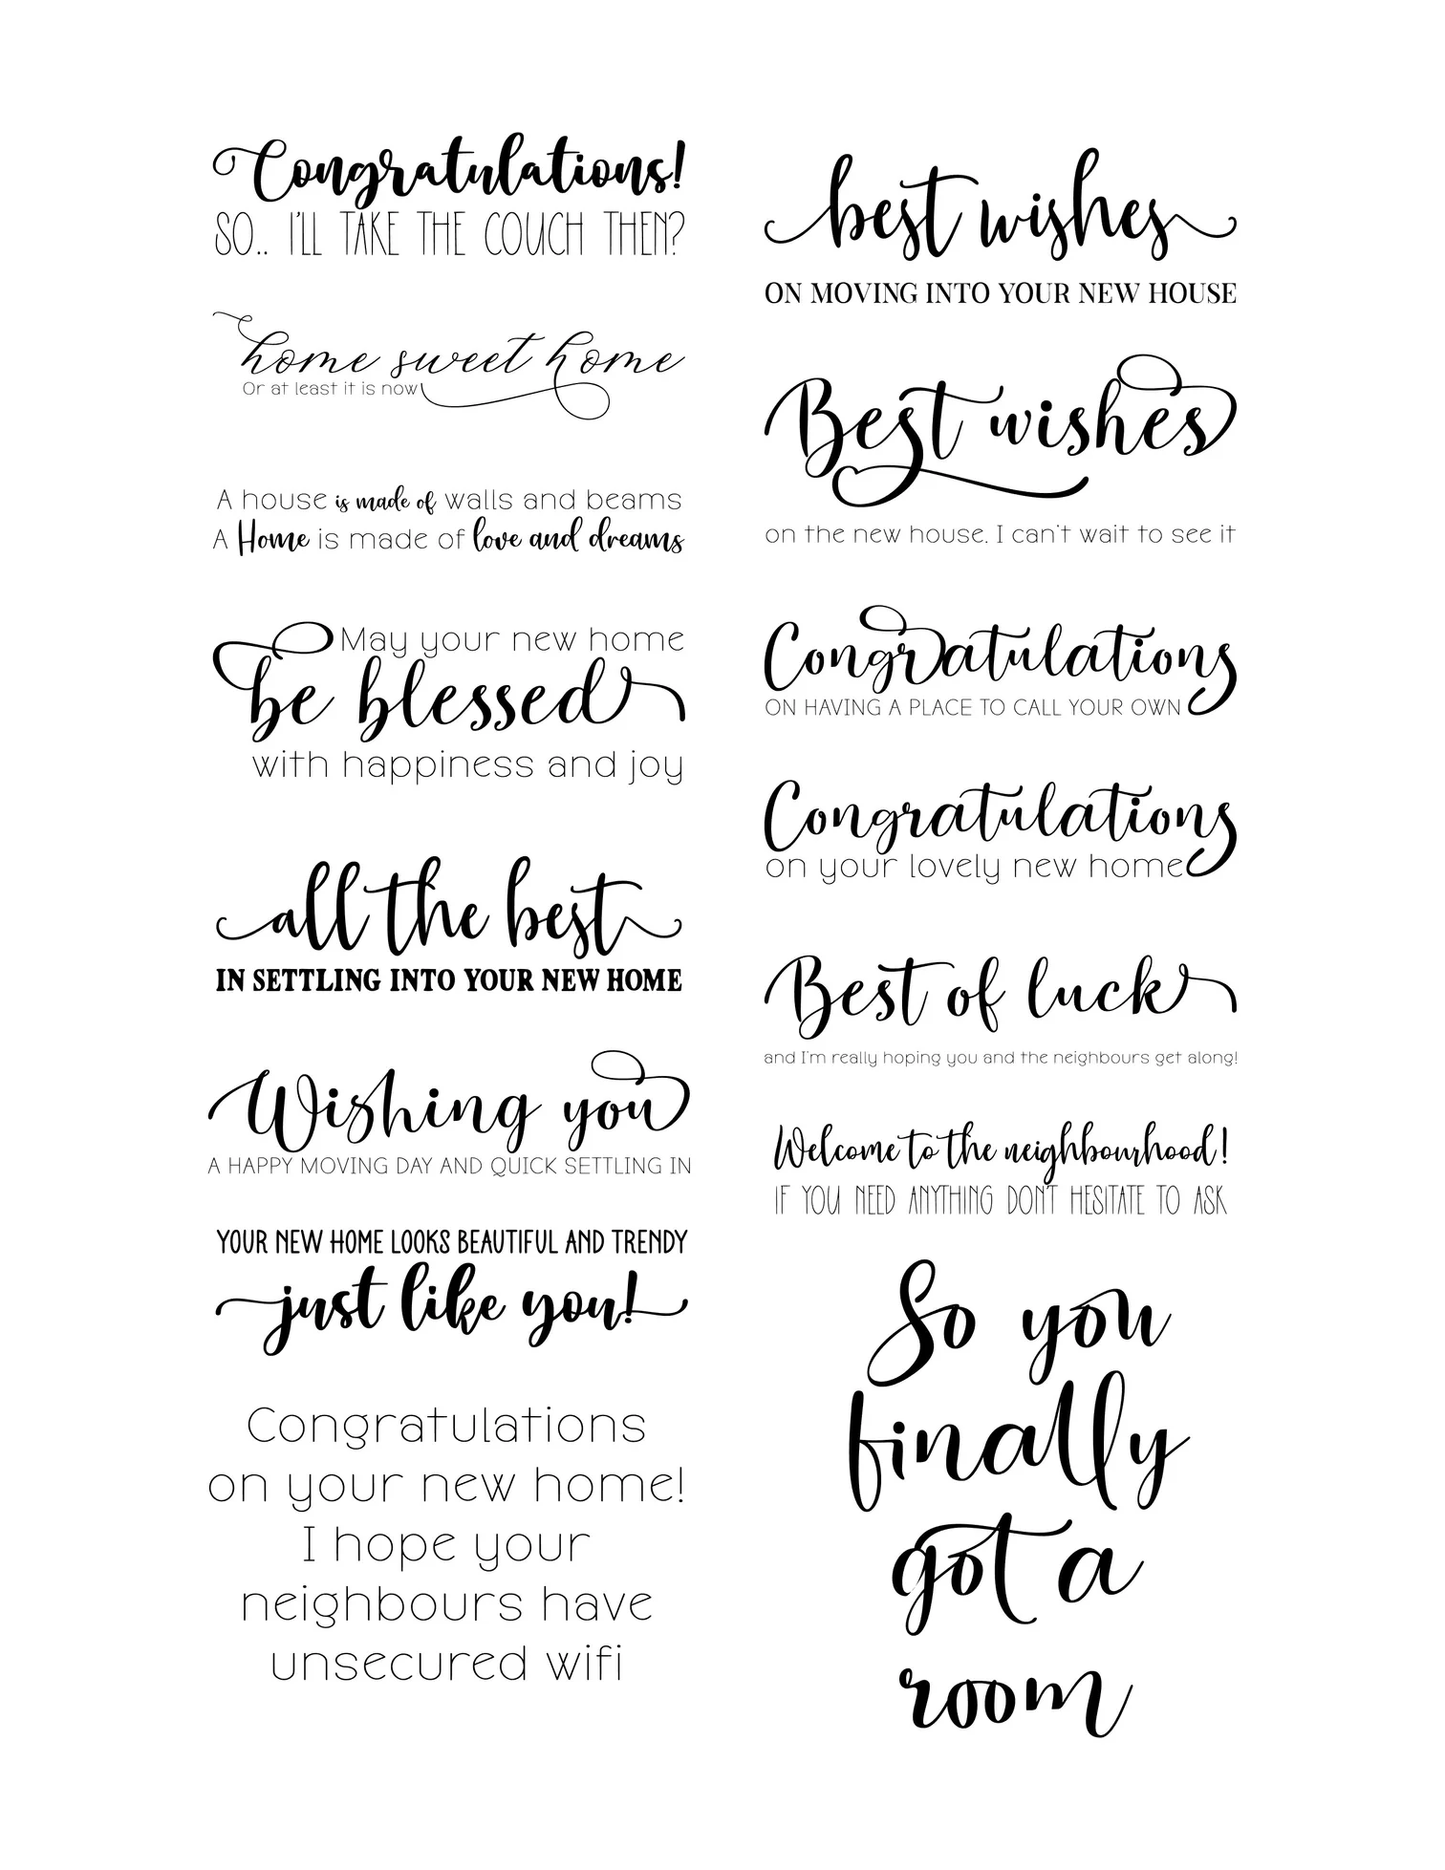 Congratulations!
SO.. I'LL TAKE THE COUCH THEN?
home sweet home
Or at least it is now
A house is made of walls and beams
A Home is made of love and dreams
May your new home
be blessed
with happiness and joy
all the best
IN SETTLING INTO YOUR NEW HOME
Wishing you
A HAPPY MOVING DAY AND QUICK SETTLING IN
YOUR NEW HOME LOOKS BEAUTIFUL AND TRENDY
just like you!
Congratulations
on your new home!
I hope your
neighbours have
unsecured wifi
best wishes
ON MOVING INTO YOUR NEW HOUSE
Best wishes
on the new house. I can't wait to see it
Congratulations
ON HAVING A PLACE TO CALL YOUR OWN
Congratulations
on your lovely new home
Best of luck
and I'm really hoping you and the neighbours get along!
Welcome to the neighbourhood!
IF YOU NEED ANYTHING DON'T HESITATE TO ASK
So you
finally
got a
room